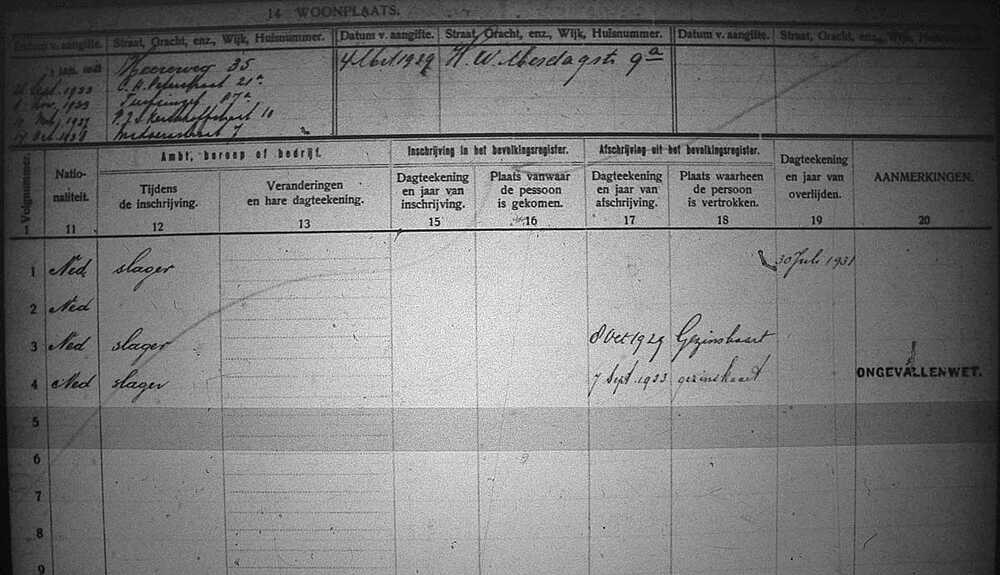 14 WOONPLAATS.
Datum v. aangifte. Straat, Gracht, enz., Wijk, Huisnummer. Datum v. aangifte. Straat, Gracht, enz., Wijk, Huisnummer. Datum v. aangifte. Straat, Gracht, enz., Wijk, Huisnummer.
Heereweg 35 4 Oct 1929 H. W. Mesdagstr 9a
Sept. 1933 21a
Nov. 1933 Turfsingel
1937 P. J. S. Kerkhoffstraat 10
17 Oct. 1938 7
Volgnummer. Nationaliteit. Ambt, beroep of bedrijf. Inschrijving in het bevolkingsregister. Afschrijving uit het bevolkingsregister. Dagteekening en jaar van overlijden. AANMERKINGEN.
Tijdens de inschrijving. Veranderingen en hare dagteekening. Dagteekening en jaar van inschrijving. Plaats vanwaar de pessoon is gekomen. Dagteekening en jaar van afschrijving. Plaats waarheen de persoon is vertrokken.
1 11 12 13 15 16 17 18 19 20
1 Ned slager 30 Juli 1931
2 Ned
3 Ned slager 8 Oct 1929 Gezinskaart
4 Ned slager 7 Sept. 1933 gezinskaart ONGEVALLENWET.
5
6
7
8
9